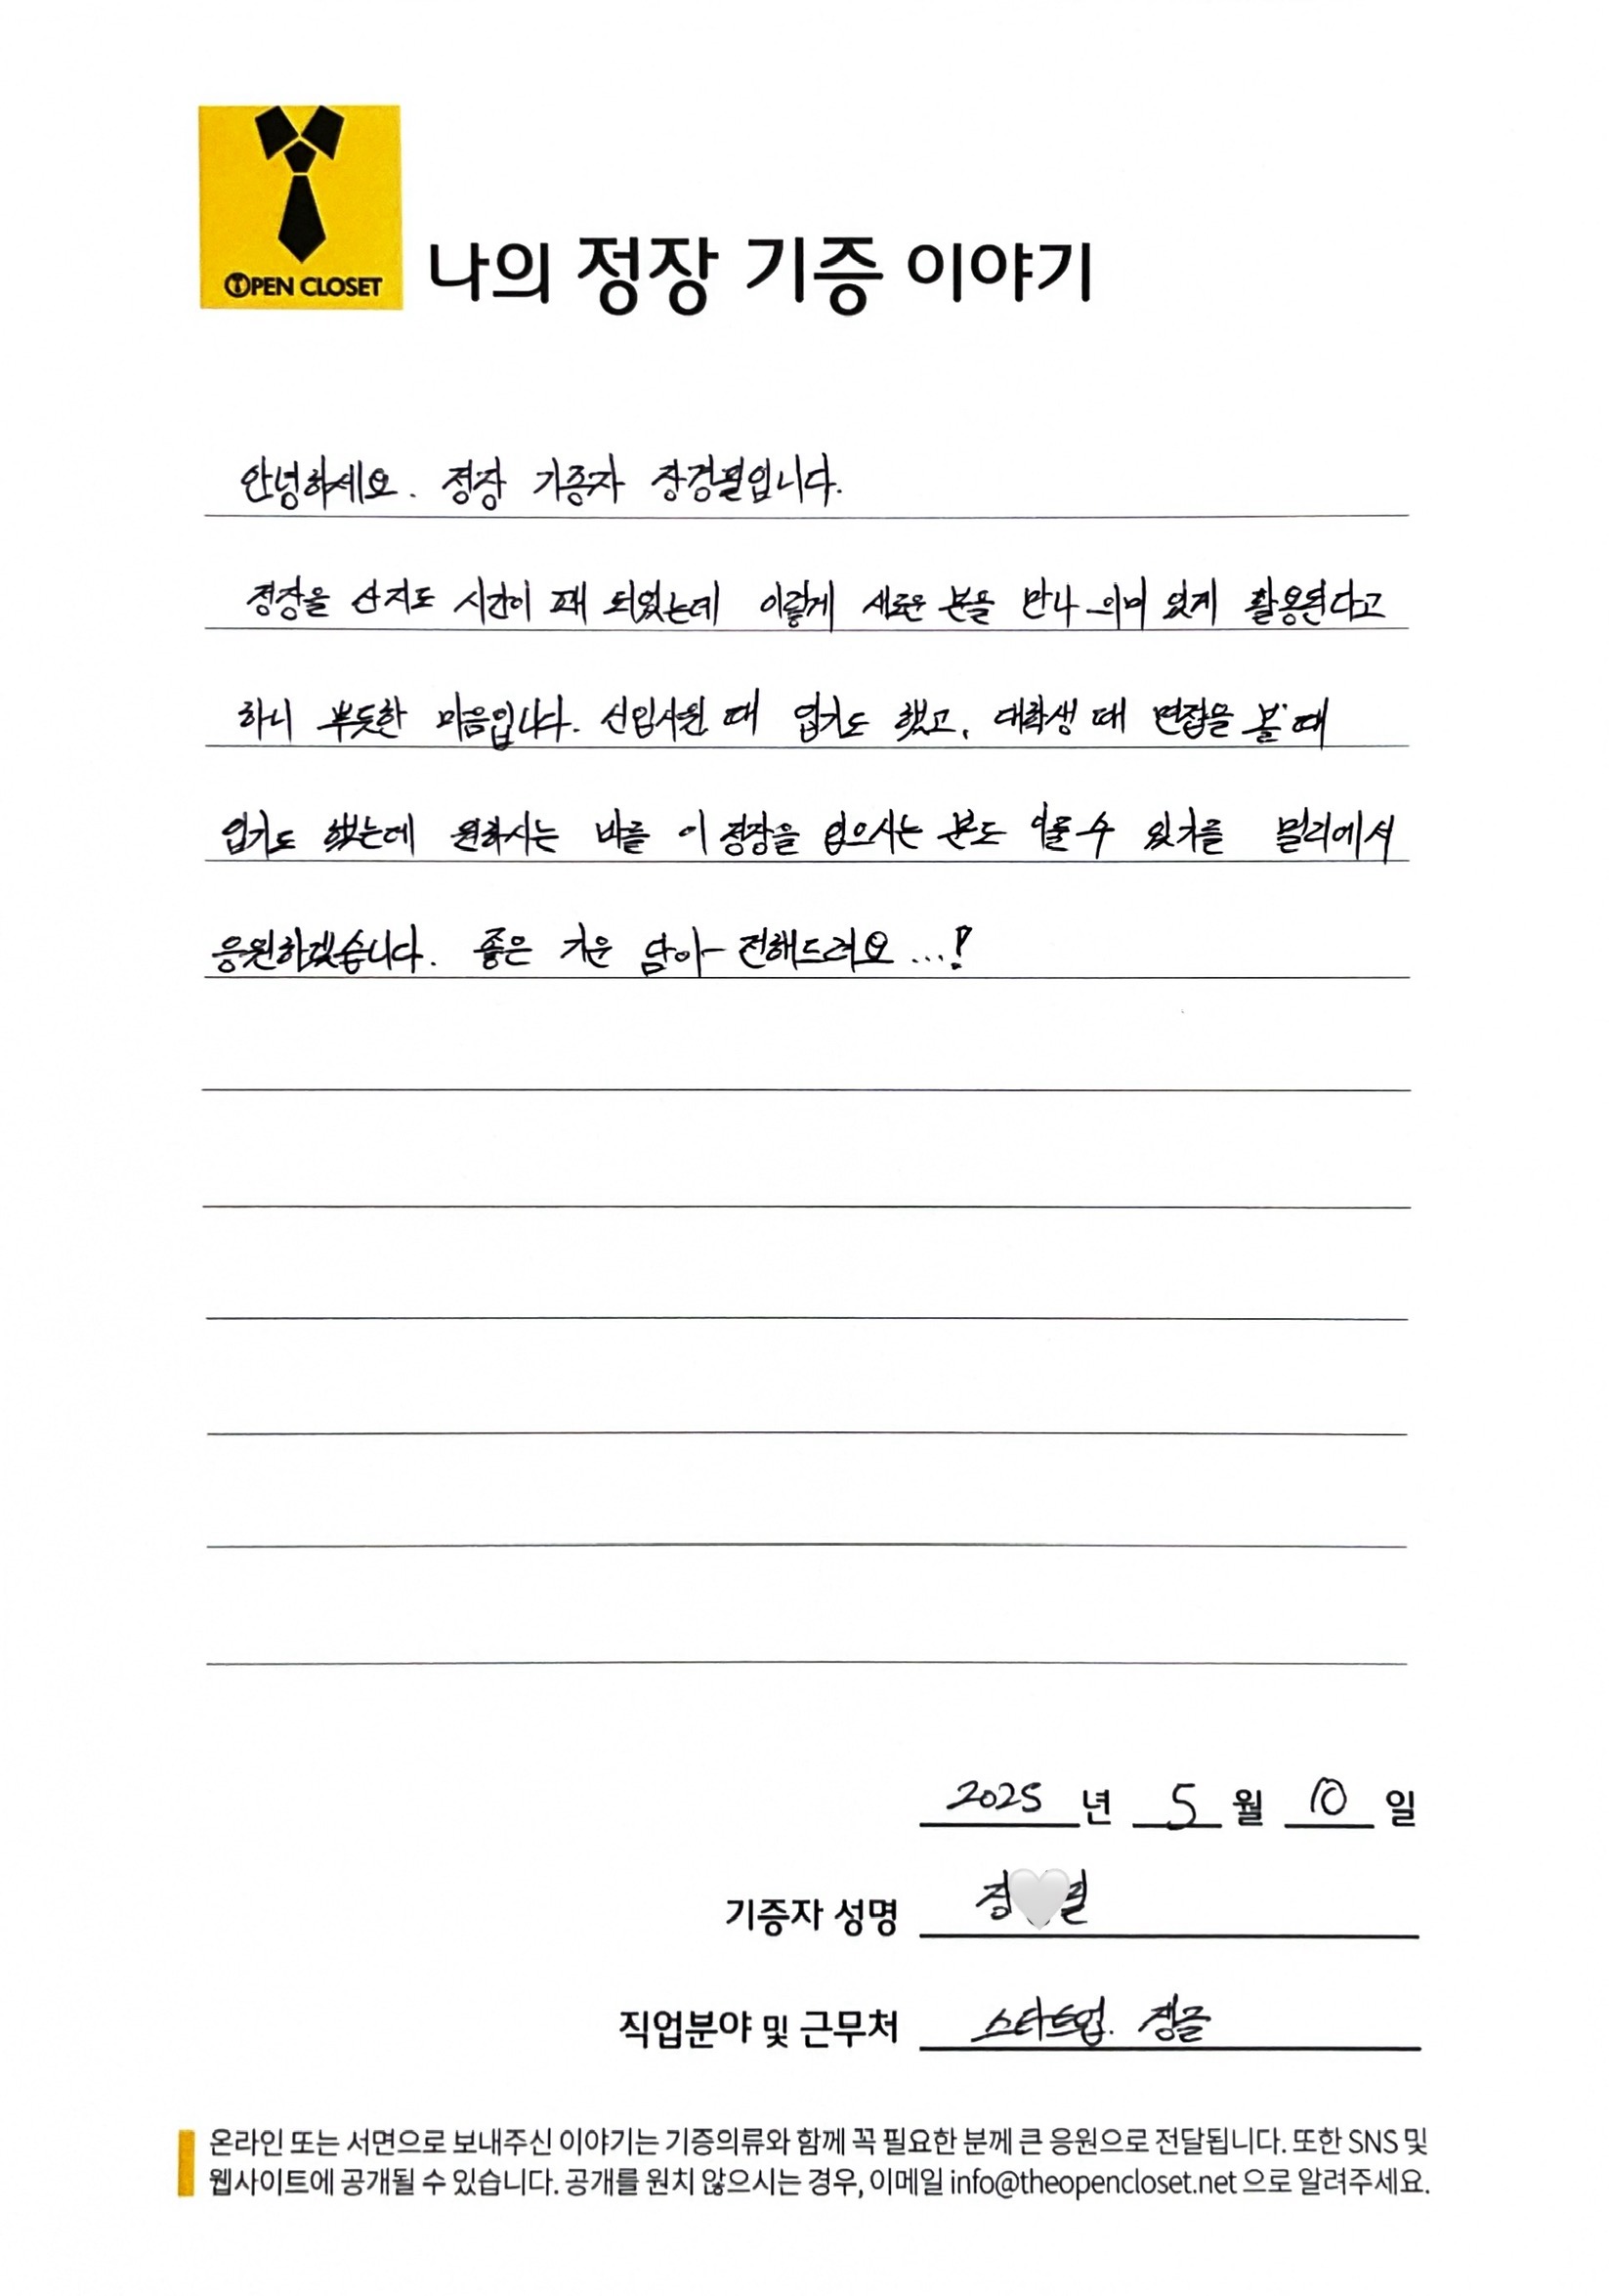 OPEN CLOSET
나의 정장 기증 이야기
안녕하세요. 정장 기증자 장경필입니다.
정장을 산지도 시간이 꽤 되었는데 이렇게 새로운 분을 만나 의미 있게 활용된다고
하니 뿌듯한 마음입니다. 신입사원 때 입기도 했고, 대학생 때 면접을 볼 때
입기도 했는데 원하시는 바를 이 정장을 입으시는 분도 이룰 수 있기를 멀리에서
응원하겠습니다. 좋은 기운 담아 전해드려요...!
2025 년 5 월 10 일
기증자 성명
직업분야 및 근무처 스타트업. 정글
온라인 또는 서면으로 보내주신 이야기는 기증의류와 함께 꼭 필요한 분께 큰 응원으로 전달됩니다. 또한 SNS 및
웹사이트에 공개될 수 있습니다. 공개를 원치 않으시는 경우, 이메일 info@theopencloset.net 으로 알려주세요.